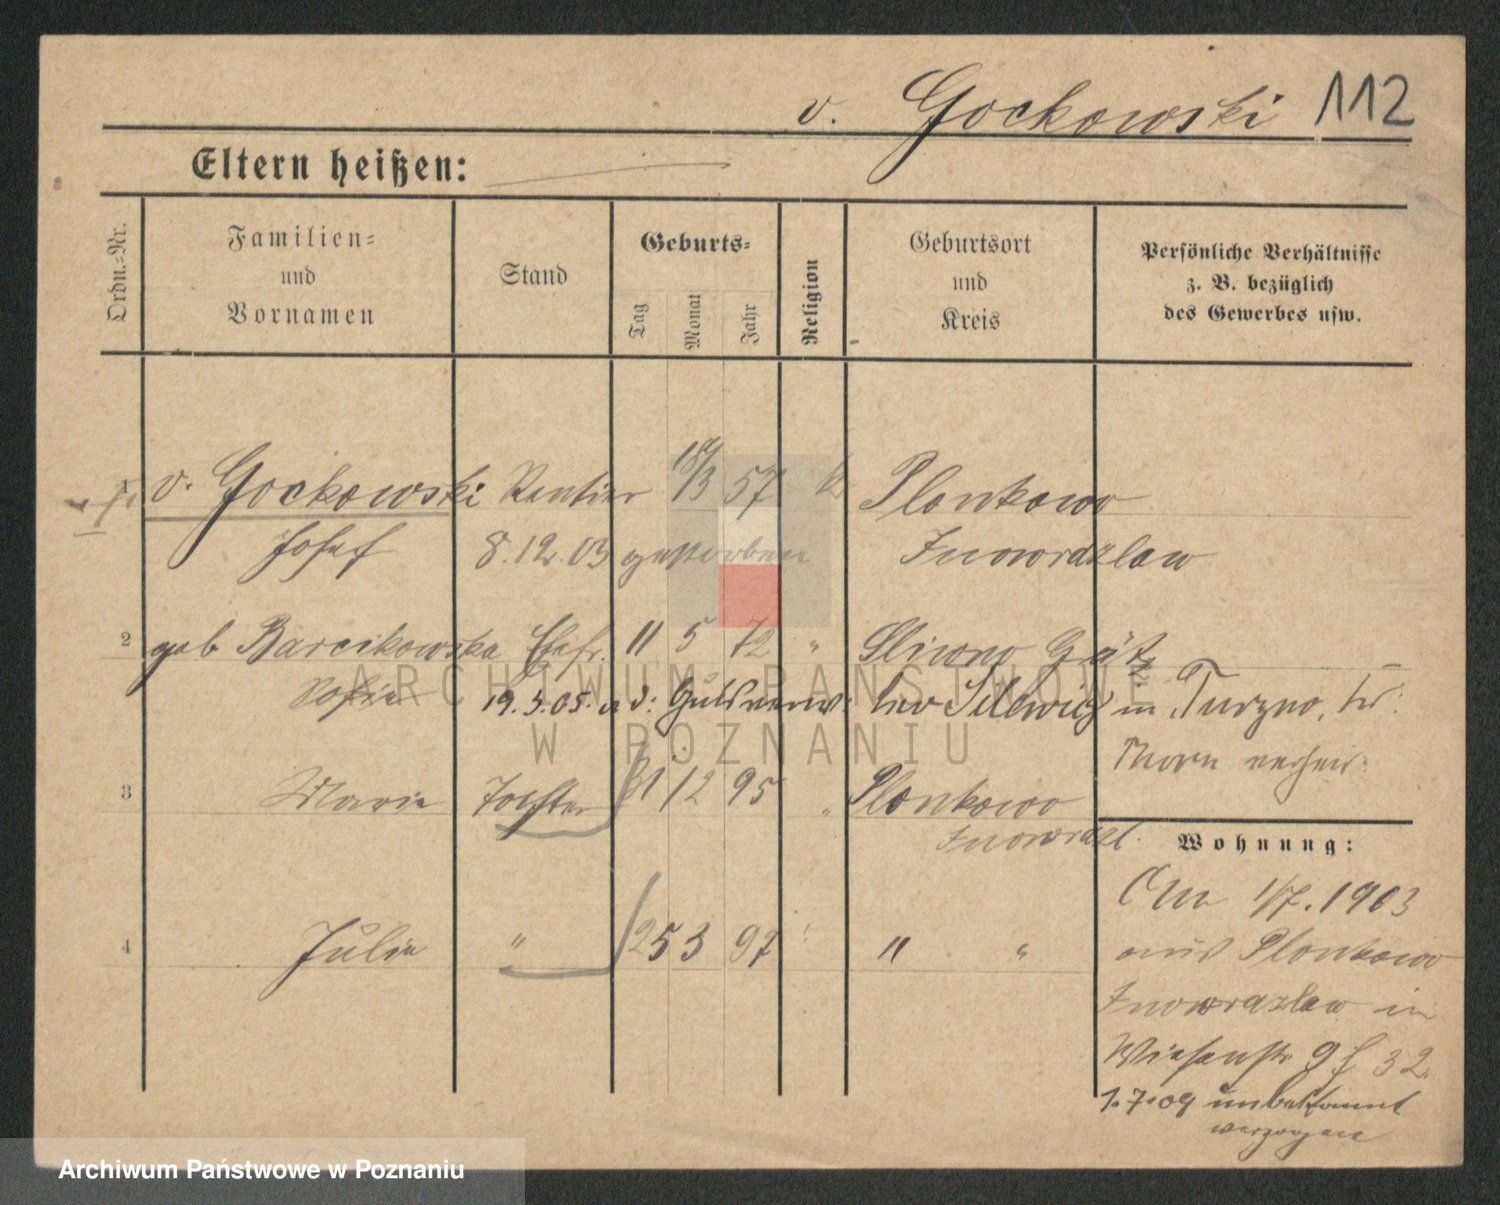 v. Gockowski 112
Eltern heißen:
Ordn.-Nr.
Familien-
und
Vornamen
Stand
Geburts-
Tag
Monat
Jahr
Religion
Geburtsort
und
Kreis
Persönliche Verhältnisse
z. B. bezüglich
des Gewerbes usw.
v. Gockowski Rentier 18/3 57 k Plonkowo
Josef 8.12.03 gestorben Inowrazlaw
2 geb Barcikowska Ehefr. 11 5 72 " Sliwno Grätz
Sofie 19.5.05. Gutsverw. in Turzno, Kr.
Thorn verheir.
3 Marie Tochter 21 12 95 " Plonkowo
Inowrazl.
Wohnung:
4 Julie " 25 3 97 " "
Am 1/7. 1903
aus Plonkowo
Inowrazlaw in
Wiesenstr 9 f 32.
1.7.09 unbekannt
verzogen
ARCHIWUM PAŃSTWOWE
W POZNANIU
Archiwum Państwowe w Poznaniu